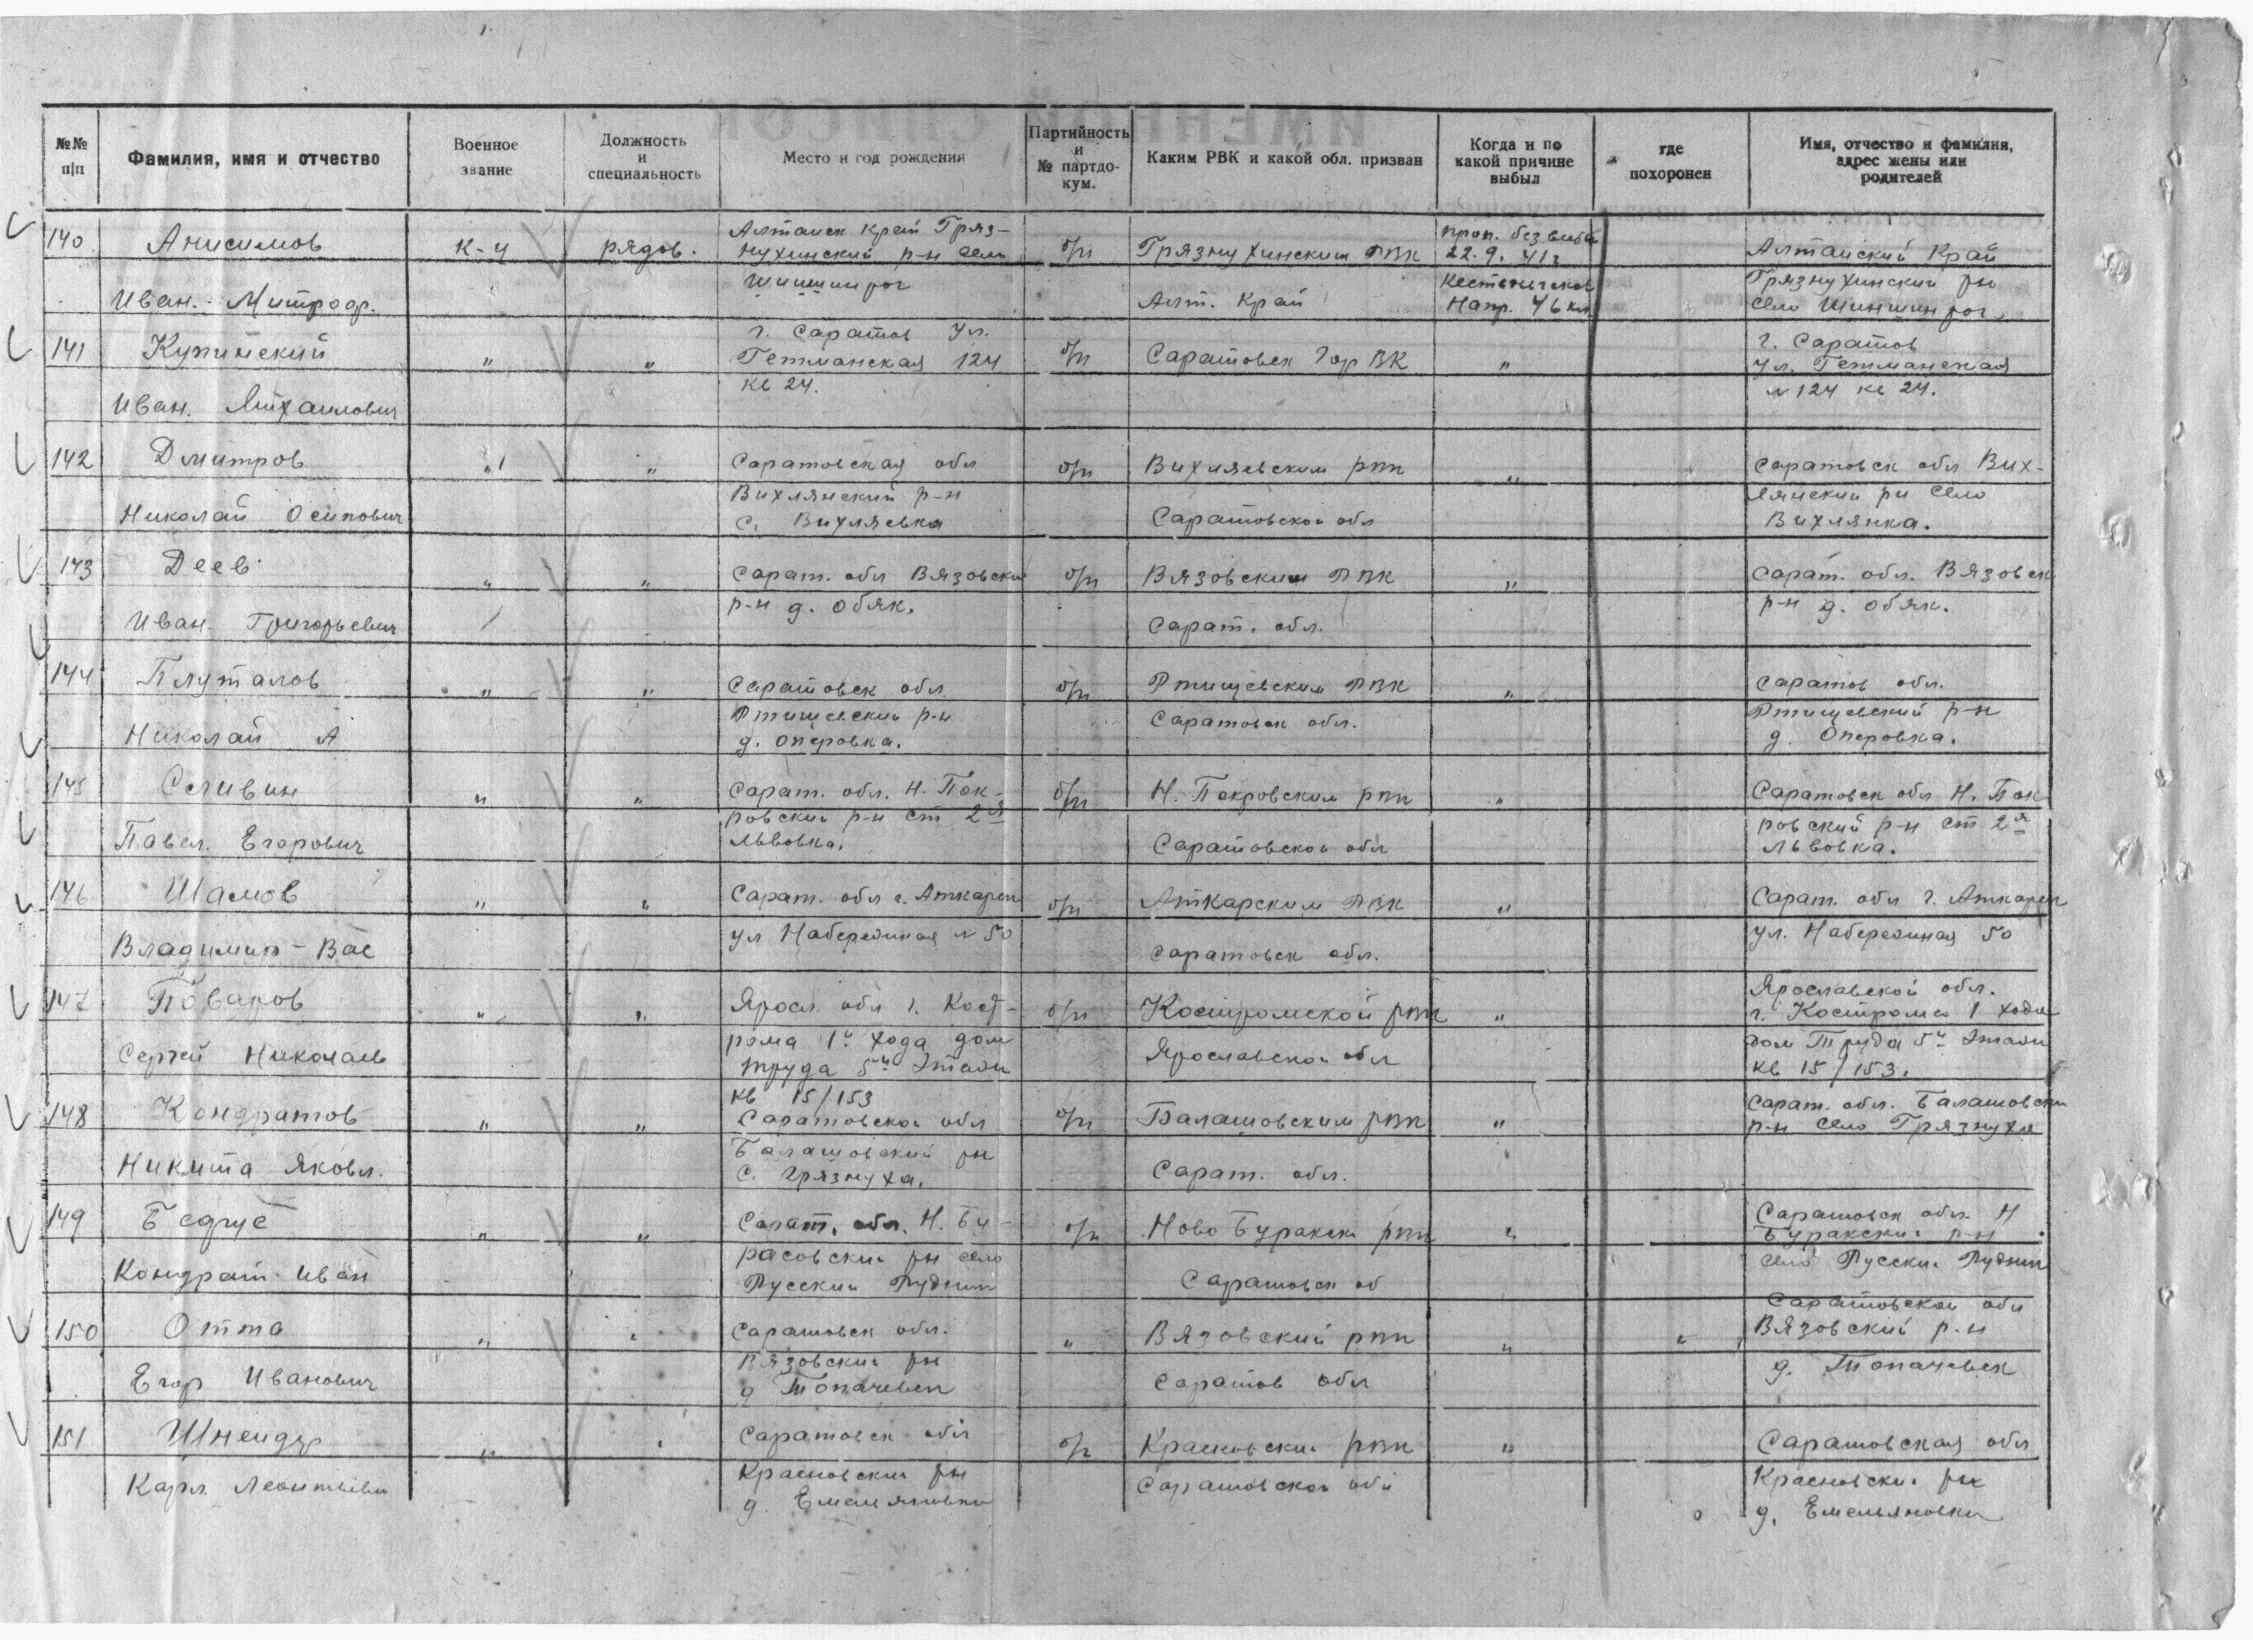 №№ п|п
Фамилия, имя и отчество
Военное звание
Должность и специальность
Место и год рождения
Партийность и № партдо-кум.
Каким РВК и какой обл. призван
Когда и по какой причине выбыл
где похоронен
Имя, отчество и фамилия, адрес жены или родителей
140 Анисимов К-ц рядов. Алтайск край Гряз- б/п Грязнухинским РВК проп. без вести Алтайский Край
нухинский р-н село 22.9.41г
Иван. Митроф. Алт. Край Кестеньгское Грязнухинский рн
Напр. 46 км. село
141 г. Саратов ул. б/п Саратовск Гор ВК " г. Саратов
" " Гетманская 124 ул. Гетманская
кв 24. № 124 кв 24.
Иван. Михаилович
142 Дмитров " " Саратовская обл б/п рвк " Саратовск обл Вих-
Вихлянский р-н лянский рн село
Николай Осипович с. Вихляевка Саратовской обл Вихлянка.
143 Деев " " Сарат. обл Вязовский б/п Вязовским РВК " Сарат. обл. Вязовск
р-н д. Обяк. р-н д. Обяк.
Иван Григорьевич Сарат. обл.
144 Плуталов " " Саратовск обл. б/п Ртищевским РВК " Саратов обл.
Ртищевский р-н Саратовск обл. Ртищевский р-н
Николай А д. Оперовка. д. Оперовка.
145 Селивин " " Сарат. обл. Н. Пок- б/п Н. Покровским рвк " Саратовск обл Н. Пок
ровский р-н ст 2я ровский р-н ст 2я
Павел. Егорович Львовка. Саратовской обл Львовка.
146 Шамов " " Сарат. обл г. Аткарск б/п Аткарским РВК " Сарат. обл г. Аткарск
ул Набережная № 50 ул. Набережная 50
Владимир - Вас Саратовск обл.
147 " " Яросл обл г. Кост- б/п Костромской рвк " Ярославской обл.
рома 1й хода дом г. Кострома 1 хода
Сергей Николаев труда 5й этаж Ярославской обл дом Труда 5й этаж
кв 15/153 кв 15/153.
148 Кондратов " " Саратовской обл б/п Балашовским рвк " Сарат. обл. Балашовски
Балашовский рн р-н село Грязнуха
Никита Яковл. с. Грязнуха. Сарат. обл.
149 " " Сарат. обл. Н. Бу- б/п Ново Буракски рвк " Саратовск обл. Н
расовский рн село Буракский р-н
Кондрат Иван Русский Саратовск об село Русский
150 Отто " " Саратовск обл. " Вязовский рвк " " Саратовской обл
Вязовский рн Вязовский р-н
Егор Иванович д Топачевск Саратов обл д. Топачевск
151 Шнейдр " " Саратовск обл б/п Красновский рвк " Саратовская обл
Карл Леонтьеви Красновский рн Саратовской обл Красновский рн
д. Емельяновка д. Емельяновка